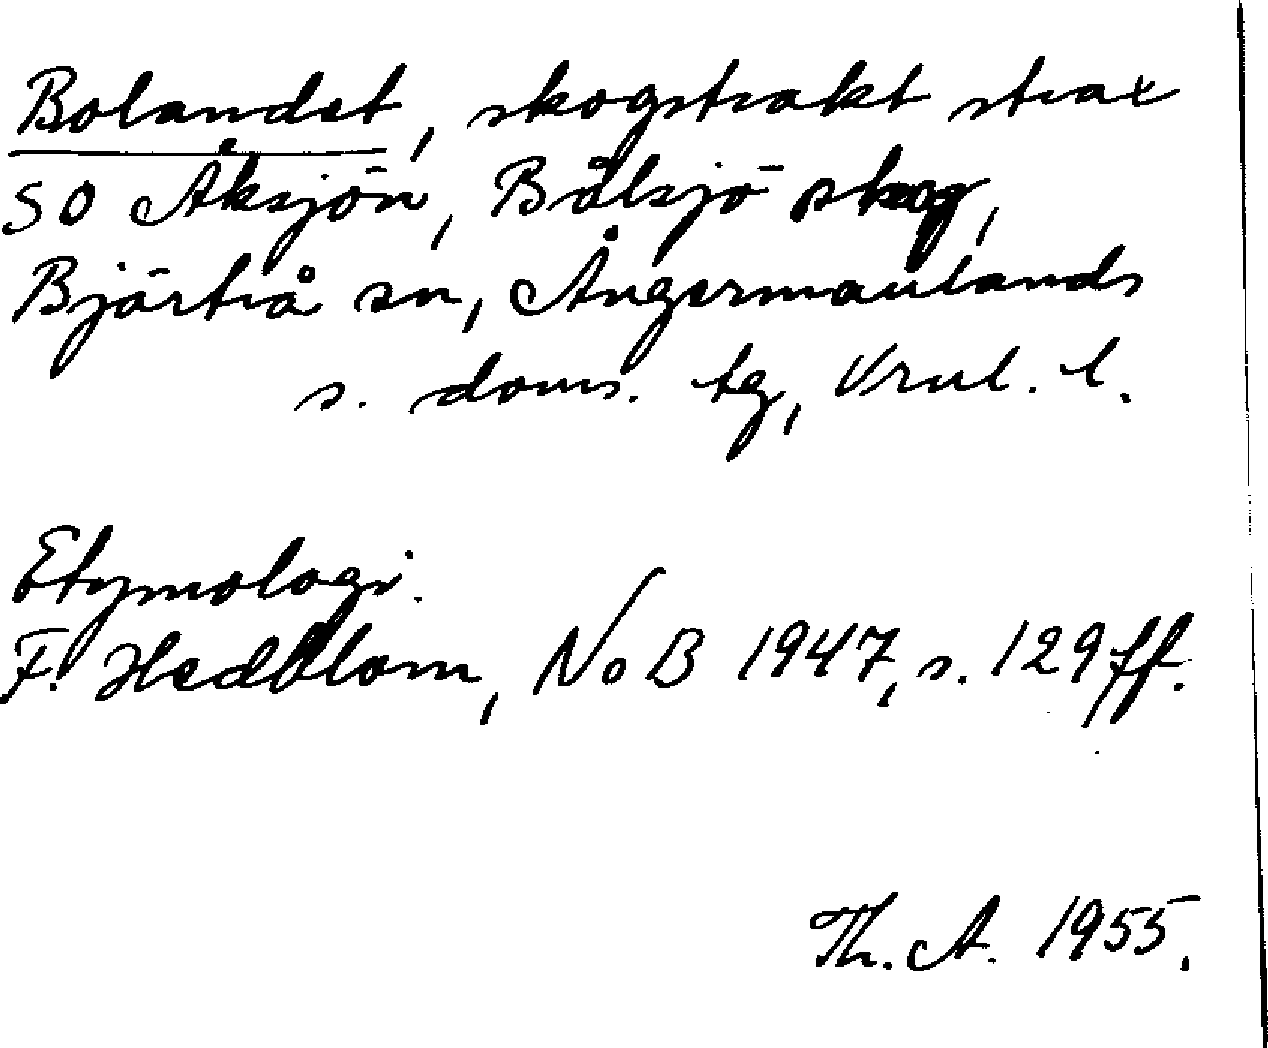 Bolandet, skogstrakt strax
SO Åksjön, Bålsjö skog,
Björtrå sn, Ångermanlands
s. doms. tg, Vrnl. l.
Etymologi.
F. Hedblom, NoB 1947, s. 129 ff.
Th. A. 1955.